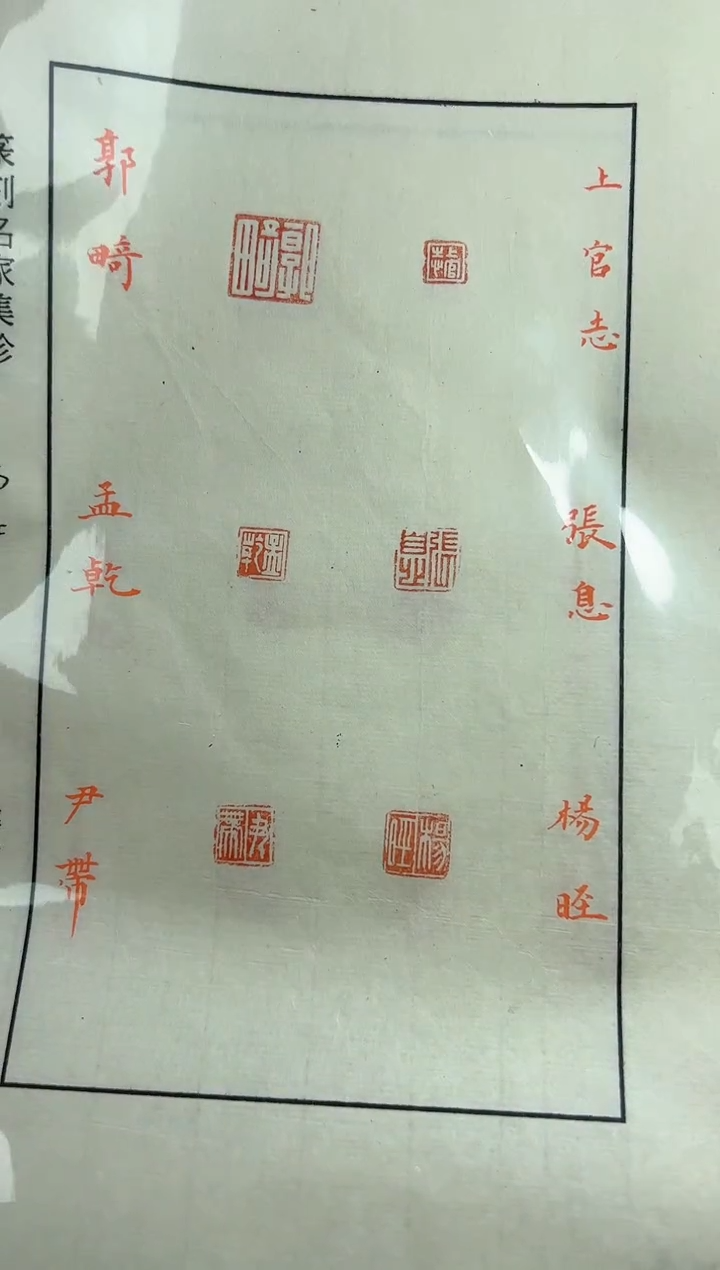 上官志
張息
楊眰
郭畸
孟乾
尹帶
篆刻名家集珍